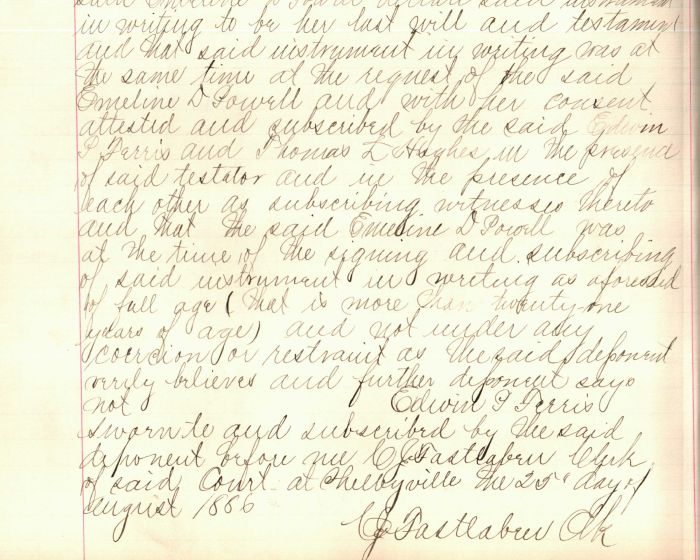 said Emeline D Powell declare said instrument
in writing to be her last will and testament
and that said instrument in writing was at
the same time at the request of the said
Emeline D Powell and with her consent
attested and subscribed by the said Edwin
P Ferris and Thomas L Hughes in the presence
of said testator and in the presence of
each other as subscribing witnesses thereto
and that the said Emeline D Powell was
at the time of the signing and subscribing
of said instrument in writing as aforesaid
of full age (that is more than twenty-one
years of age) and not under any
coercion or restraint as the said deponent
verily believes and further deponent says
not Edwin P Ferris
Sworn to and subscribed by the said
deponent before me Clerk
of said Court at Shelbyville the 25" day of
August 1886
Clk